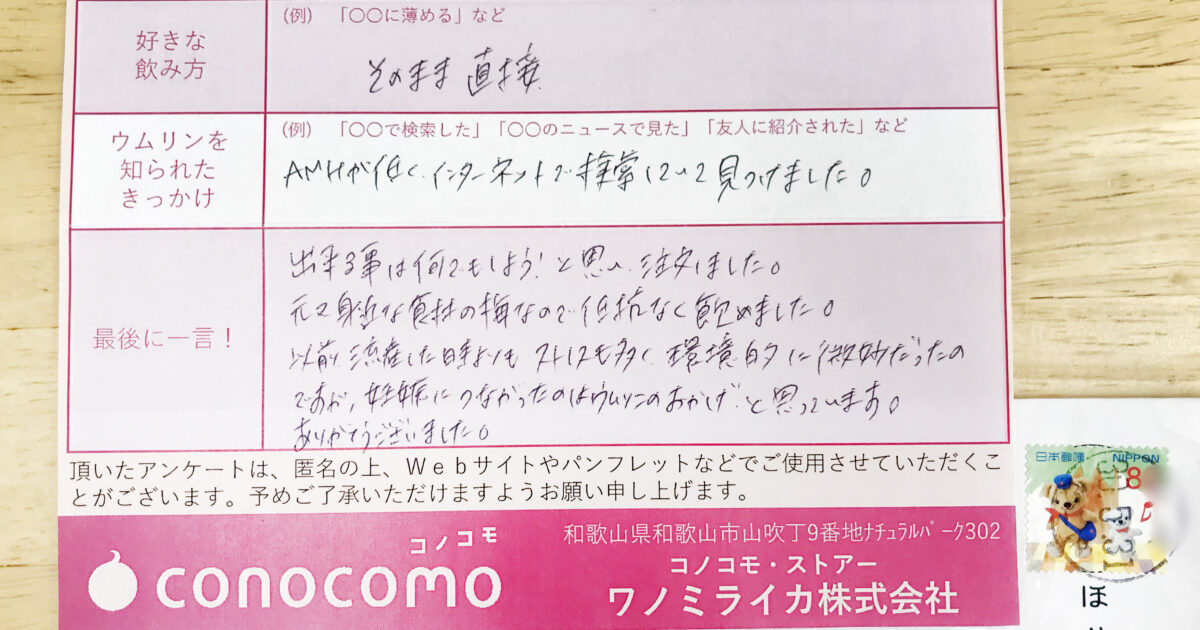 好きな
飲み方
(例) 「〇〇に薄める」など
そのまま 直接
ウムリンを
知られた
きっかけ
(例) 「〇〇で検索した」「〇〇のニュースで見た」「友人に紹介された」など
AMHが低く、インターネットで検索していて見つけました。
最後に一言！
出来る事は何でもしよう！と思い、注文しました。
元々身近な食材の梅なので、低抗なく飲めました。
以前、流産した時よりも ストレスも多く、環境的に微妙だったの
ですが、妊娠につながったのはウムリンのおかげ と思っています。
ありがとうございました。
頂いたアンケートは、匿名の上、Ｗｅｂサイトやパンフレットなどでご使用させていただくこ
とがございます。予めご了承いただけますようお願い申し上げます。
コノコモ
conocomo
和歌山県和歌山市山吹丁9番地ﾅﾁｭﾗﾙﾊﾟｰｸ302
コノコモ・ストアー
ワノミライカ株式会社
日本郵便 NIPPON
8
ほ